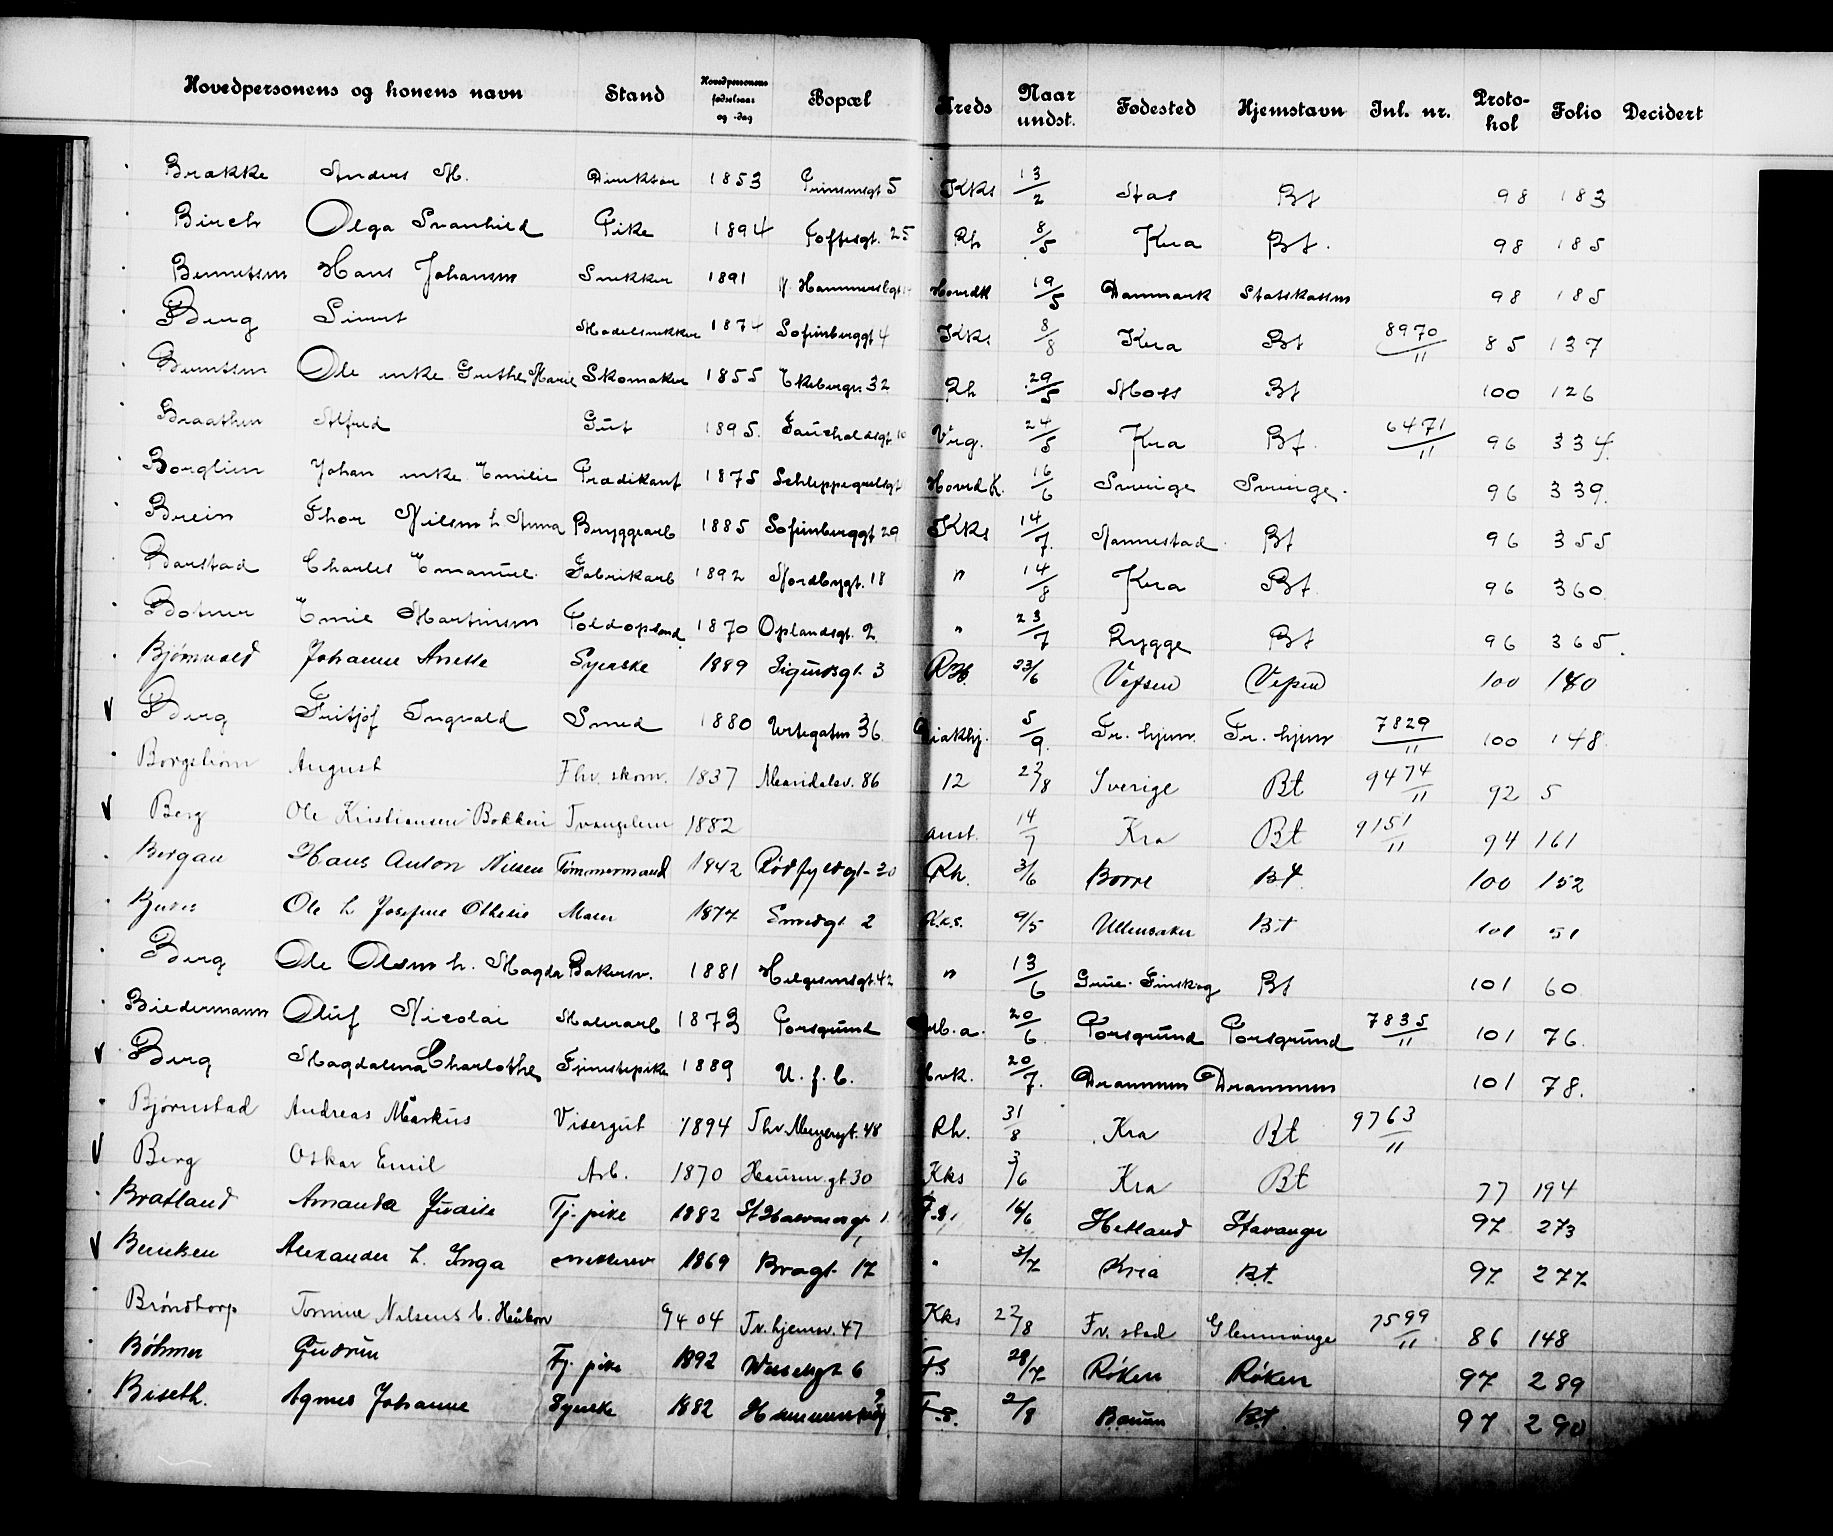 Hovedpersonens og konens navn Stand Hovedpersonens fødselsaar og -dag Bopæl Kreds Naar undst. Fødested Hjemstavn Inl. nr. Protokol Folio Decidert
Brakke Anders M. Direktør 1853 Prinsensgt 5 Kks 13/2 Aas Bt 98 183
Birch Olga Svanhild Pike 1894 Toftesgt. 25 Rh 8/5 Kra Bt. 98 185
Berntsen Hans Johansen Snekker 1891 Hovedk 19/5 Danmark Statskassen 98 185
Berg Sivert Modelsnekker 1874 Sofienberggt 4 Kks 8/8 Kra Bt 8970/11 85 137
Berntsen Ole enke Grethe Marie Skomaker 1855 Ekebergv. 32 Rh 29/5 Moss Bt 100 126
Braathen Alfred Gut 1895. Fauchaldsgt 10 Vrg. 24/5 Kra Bt. 6471/11 96 334.
Borglin Johan enke Emilie Prædikant 1875 Schleppegrelsgt Hovedk. 16/6 Sverige Sverige. 96 339.
Brein Thor Nilsen h Anna Bryggearb 1885 Sofienberggt 29 Kks 14/7. Nannestad Bt 96 355
Barstad Charles Emanuel. Fabrikarb 1892 Nordbygt. 18 " 14/8 Kra Bt. 96 360
Botner Emil Martinsen Toldopsend. 1870 Oplandsgt. 2 " 23/7 Rygge Bt 96 365.
Bjørnvald Johanne Anette Syerske 1889 Sigurdsgt. 3 RH. 23/6 Vefsen Vefsen 100 180
Berg Fritjof Ingvald Smed 1880 Urtegaten 36 Diakhj. 5/9. Fr. hjem Fr. hjem 7829/11 100 148.
Borgstrøm August Fhv. skom. 1837 Maridalsv. 86 12 22/8 Sverige Bt 9474/11 92 5
Berg Ole Kristiansen Bakken 1882 anst. 14/7 Kra Bt 9151/11 94 161
Bergan Hans Anton Nilsen Tømmermand 1842 Rødfyldgt. 20 Rh. 3/6 Borre Bt 100 152
Ole h Josefine Othelie Maler 1874 Smedgt 2 K.k.s. 9/5 Ullensaker Bt 101 51
Berg Ole Olsen h. Magda Bakersv. 1881 Helgesensgt. 42 " 13/6 Grue. Finskog Bt 101 60
Biedermann Oluf Nicolai Malerarb 1873 Porsgrund Arb. a. 20/6. Porsgrund Porsgrund 7835/11 101 76.
Berg Magdalena Charlothe Tjenestepike 1889 U. f. b. Hvk. 20/7. Drammen Drammen 101 78.
Bjørnstad Andreas Markus Visergut 1894 Thv. Meyersgt. 48 Rh. 31/8 Kra Bt 9763/11
Berg Oskar Emil Arb. 1870 Hausm. gt. 30 Kks 3/6 Kra Bt 77 194
Bratland Amanda Judile Tj. pike 1882 St. Halvardsgt. 1 F.s. 16/6 Hetland Stavanger 97 273
Bentsen Alexander h. Inga snekkersv 1869 Bragt. 17 " 3/7 Kria Bt. 97 277
Brøndtorp Tomine Nilsens b. Haakon 9/4 04 Tv. hjemsv. 47 Kks 22/8 Fr. stad Glemminge 7599/11 86 148
Bøhmer Gudrun Tj. pike 1892 Wesselsgt 6 F.s 28/7 Røken Røken 97 289
Biseth. Agnes Johanne Syerske 1882 F.s. 2/8 Bærum Bt 97 290